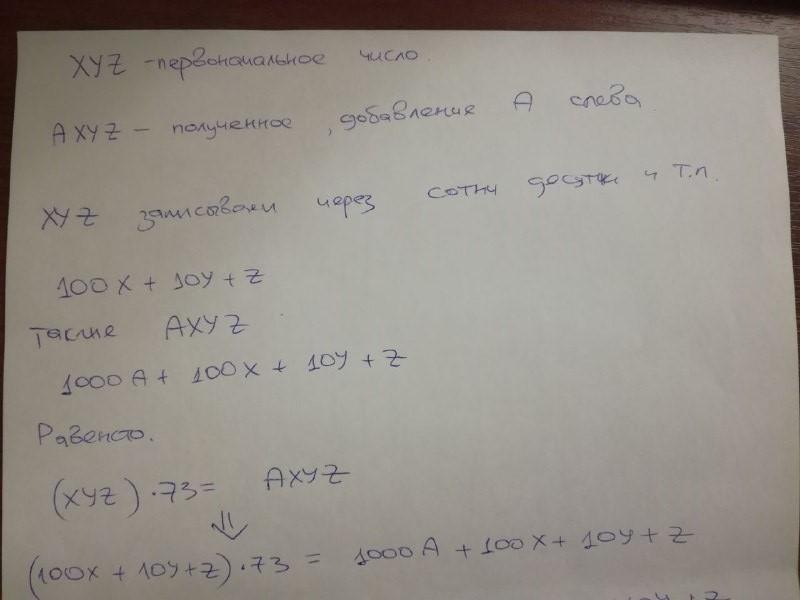 XYZ - первоначальное число.
AXYZ - полученное, добавление A слева
XYZ записываем через сотни десятки и т.п.
100X + 10Y + Z
Также AXYZ
1000A + 100X + 10Y + Z
Равенство.
(XYZ) · 73 = AXYZ
⇓
(100X + 10Y + Z) · 73 = 1000A + 100X + 10Y + Z